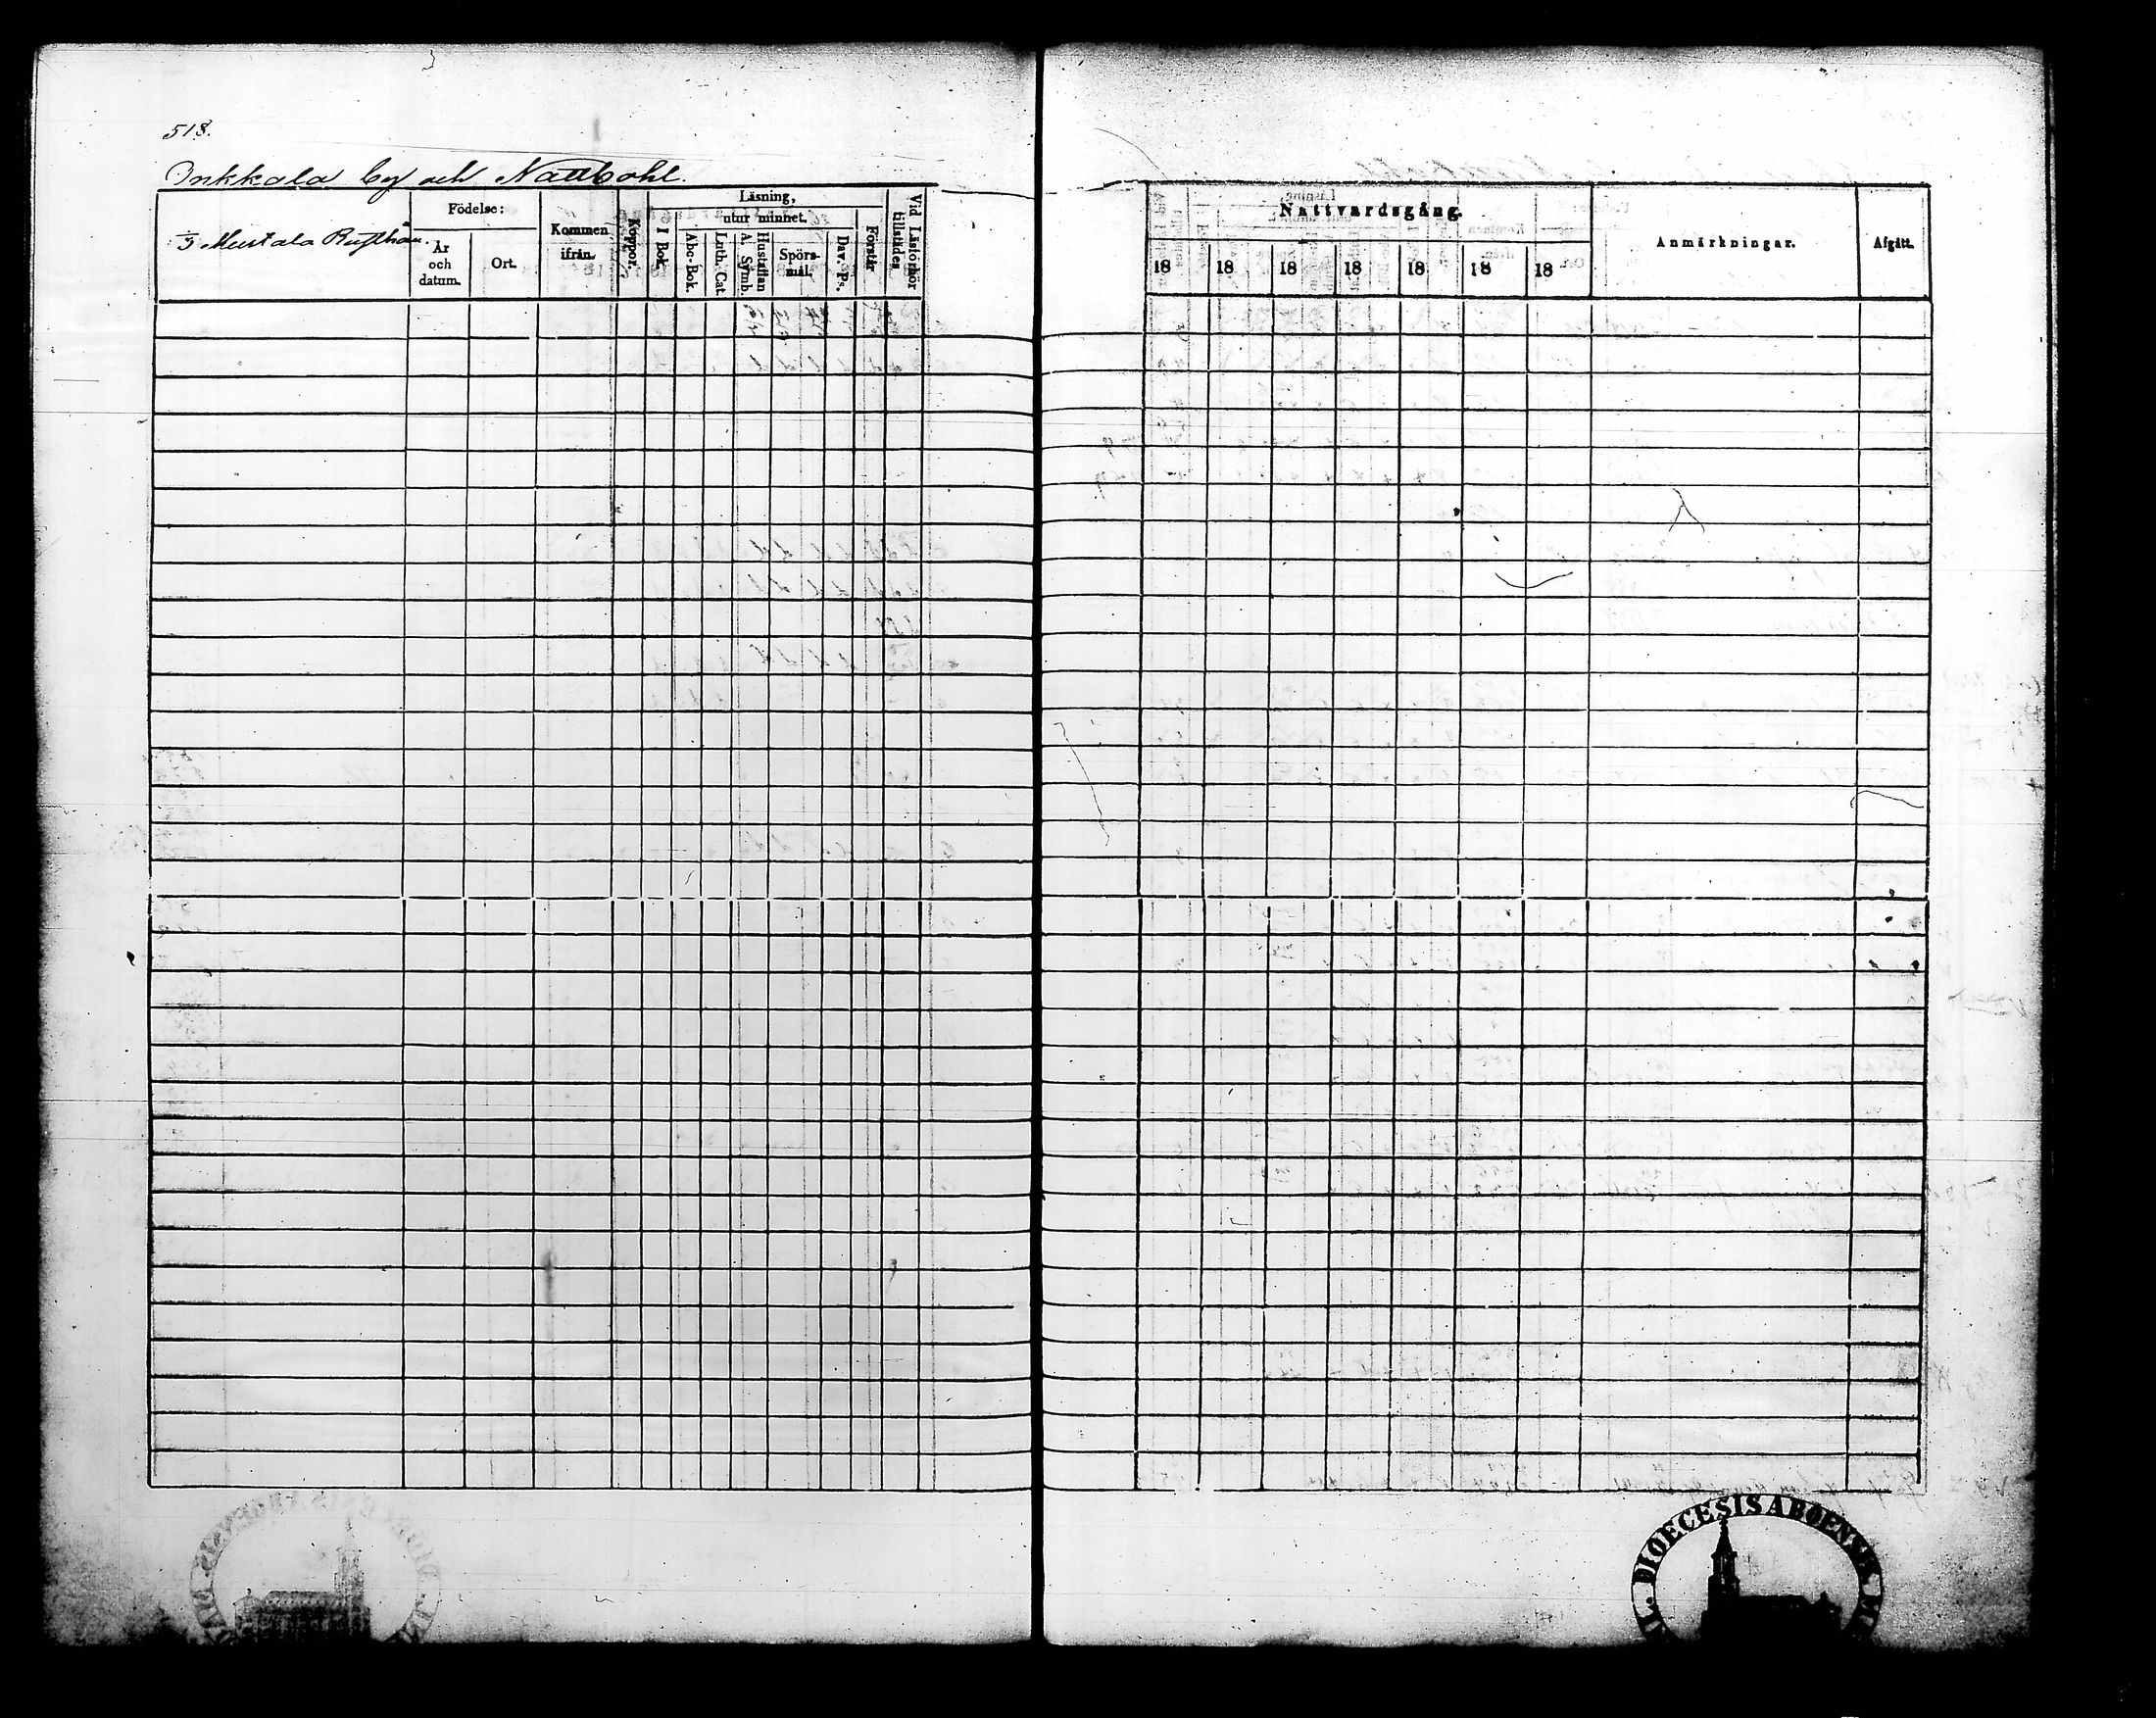 518.
Inkkala by och Nattbohl.
Mustala Rusthåll.
Födelse:
År och datum.
Ort.
Kommen ifrån.
Koppor.
Läsning,
I Bok.
utur minnet.
Abc-Bok.
Luth. Cat.
Hustaflan A. Symb.
Spörs-mål.
Dav. Ps.
Förstår
Vid Läsförhör tillstädes
Nattvardsgång.
18 18 18 18 18 18 18
Anmärkningar.
Afgått.
DIOECESIS ABOENSIS